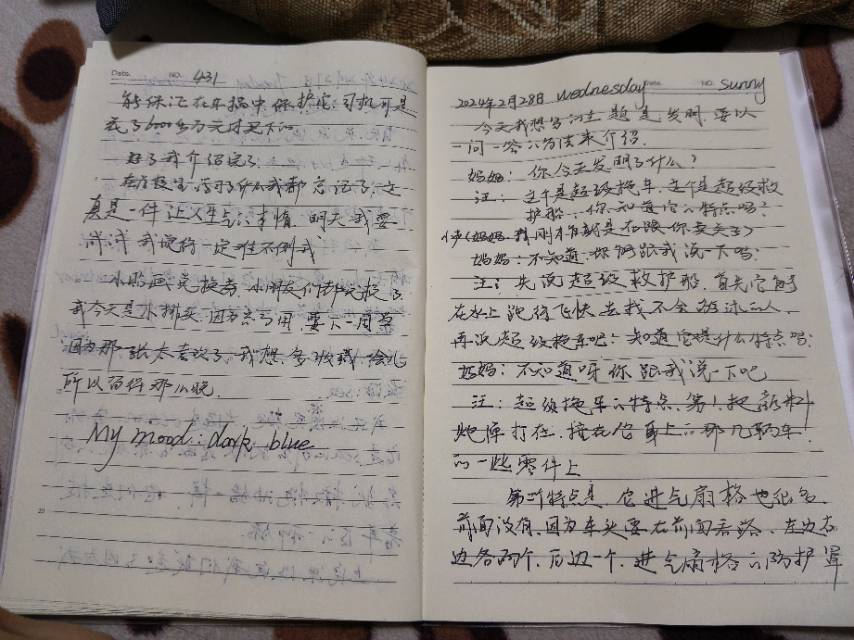 Date. NO. 431
能保证在车祸中保护它 司机可是
花了600多万元才买下的
好了我介绍完了
在学校学习了什么我都忘记了,这
真是一件让人生气的事情,明天我要
我觉得一定难不倒我
小朋友们都
我今天是小排头,因为
因为那一张太喜欢了,我想多
所以画得那么晚.
My mood: dark blue
2024年2月28日 wednesday Date. NO. sunny
今天我想写的主题是发明,要以
一问一答的方法来介绍.
妈妈:你今天发明了什么?
注:这个是超级拖车,这个是超级救
护船,你知道它的特点吗?
(妈妈,我刚才就是在跟你卖关子)
妈妈:不知道,你能跟我说一下吗?
注:先说超级救护船,首先它能
在水上跑得飞快去找不会游泳的人,
再说超级拖车吧:知道它是什么特点吗?
妈妈:不知道呀你跟我说一下吧
注:超级拖车的特点,第1,把
炮弹打在,撞在它身上的那几辆车,
的一些零件上
第二个特点是,它进气扇格也很多,
前面没有,因为车头要在前面看路,左边右
边各两个,后边一个,进气扇格的防护罩